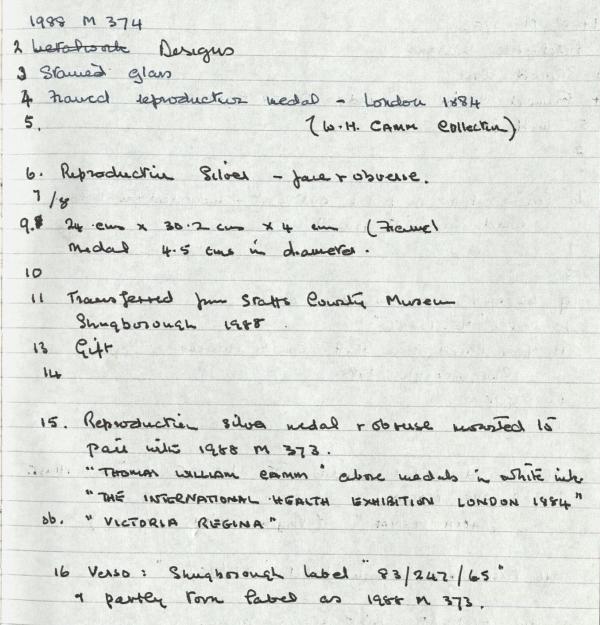 1988 M 374
2 Designs
3 Stained glass
4 Framed reproduction medal - London 1884
5. (W.H. CAMM Collection)
6. Reproduction Silver - face + obverse.
7/8
9. 24 cms x 30.2 cms x 4 cm (Frame)
medal 4.5 cms in diameter.
10
11 Transferred from Staffs County Museum
Shugborough 1988
13 Gift
14
15. Reproduction silver medal + obverse mounted to
pair with 1988 M 373.
"THOMAS WILLIAM CAMM" above medals in white ink
"THE INTERNATIONAL HEALTH EXHIBITION LONDON 1884"
ob. "VICTORIA REGINA"
16 Verso: Shugborough label "83/247/65"
+ partly torn label as 1988 M 373.